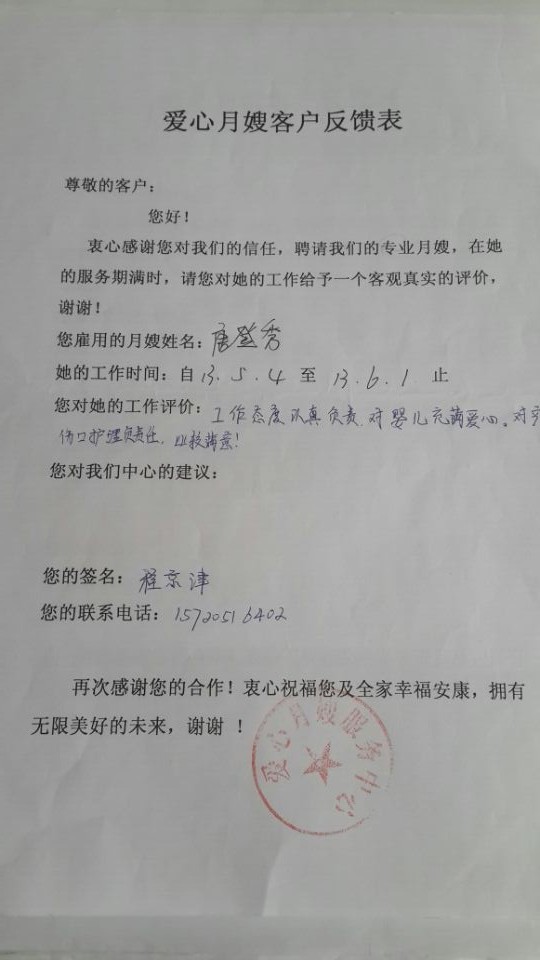 爱心月嫂客户反馈表
尊敬的客户：
您好！
衷心感谢您对我们的信任，聘请我们的专业月嫂，在她
的服务期满时，请您对她的工作给予一个客观真实的评价，
谢谢！
您雇用的月嫂姓名：唐登秀
她的工作时间：自 13.5.4 至 13.6.1 止
您对她的工作评价：工作态度认真负责，对婴儿充满爱心。对
伤口护理负责任，比较满意！
您对我们中心的建议：
您的签名：程京津
您的联系电话：15720516402
再次感谢您的合作！衷心祝福您及全家幸福安康，拥有
无限美好的未来，谢谢！
爱心月嫂服务中心